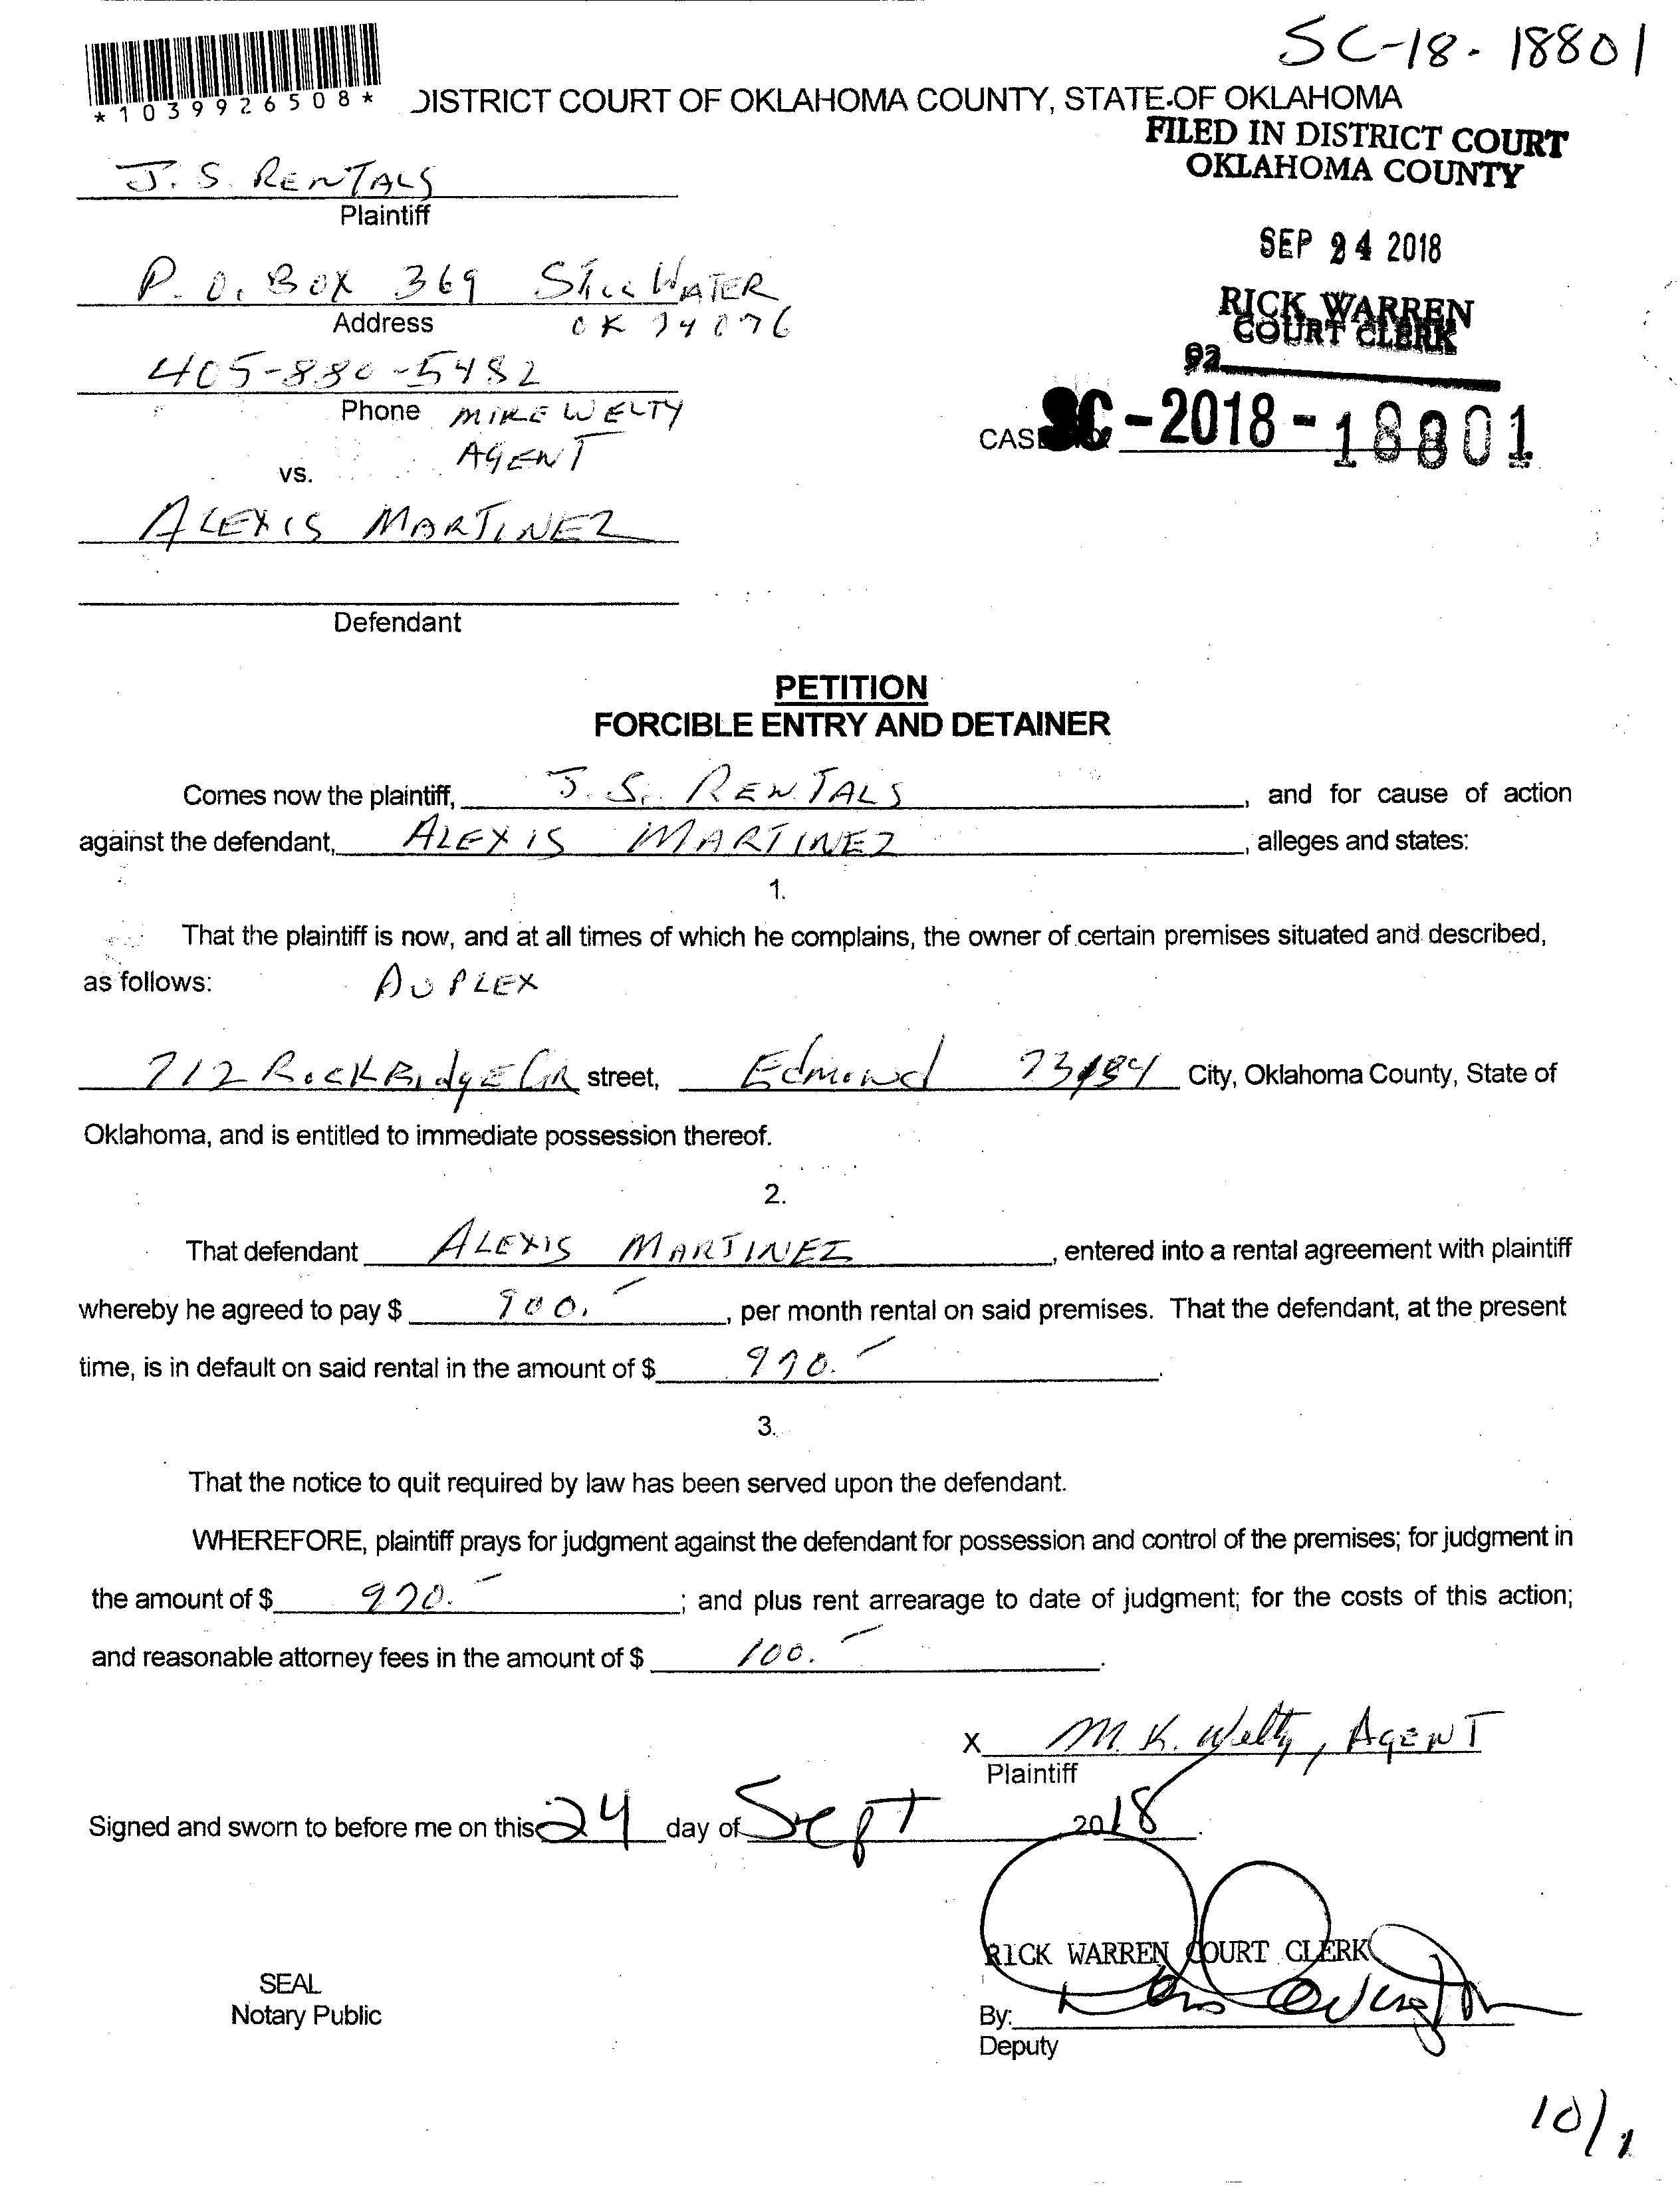 SC-18-18801
*1039926508*
DISTRICT COURT OF OKLAHOMA COUNTY, STATE OF OKLAHOMA
FILED IN DISTRICT COURT
OKLAHOMA COUNTY
J. S. RENTALS
Plaintiff
SEP 24 2018
P. O. BOX 369 STILLWATER
Address OK 74076
RICK WARREN
COURT CLERK
92
405-880-5482
Phone MIKE WELTY
AGENT
CAS SC-2018-18801
vs.
ALEXIS MARTINEZ
Defendant
PETITION
FORCIBLE ENTRY AND DETAINER
Comes now the plaintiff, J. S. RENTALS, and for cause of action
against the defendant, ALEXIS MARTINEZ, alleges and states:
1.
That the plaintiff is now, and at all times of which he complains, the owner of certain premises situated and described,
as follows: DUPLEX
712 ROCKBRIdgE CIR street, Edmond 73134 City, Oklahoma County, State of
Oklahoma, and is entitled to immediate possession thereof.
2.
That defendant ALEXIS MARTINEZ, entered into a rental agreement with plaintiff
whereby he agreed to pay $ 900.-, per month rental on said premises. That the defendant, at the present
time, is in default on said rental in the amount of $ 970.-.
3.
That the notice to quit required by law has been served upon the defendant.
WHEREFORE, plaintiff prays for judgment against the defendant for possession and control of the premises; for judgment in
the amount of $ 970.-; and plus rent arrearage to date of judgment; for the costs of this action;
and reasonable attorney fees in the amount of $ 100.-.
X M. K. Welty, AGENT
Plaintiff
Signed and sworn to before me on this 24 day of Sept 2018.
RICK WARREN COURT CLERK
SEAL
Notary Public
By:
Deputy
10/1